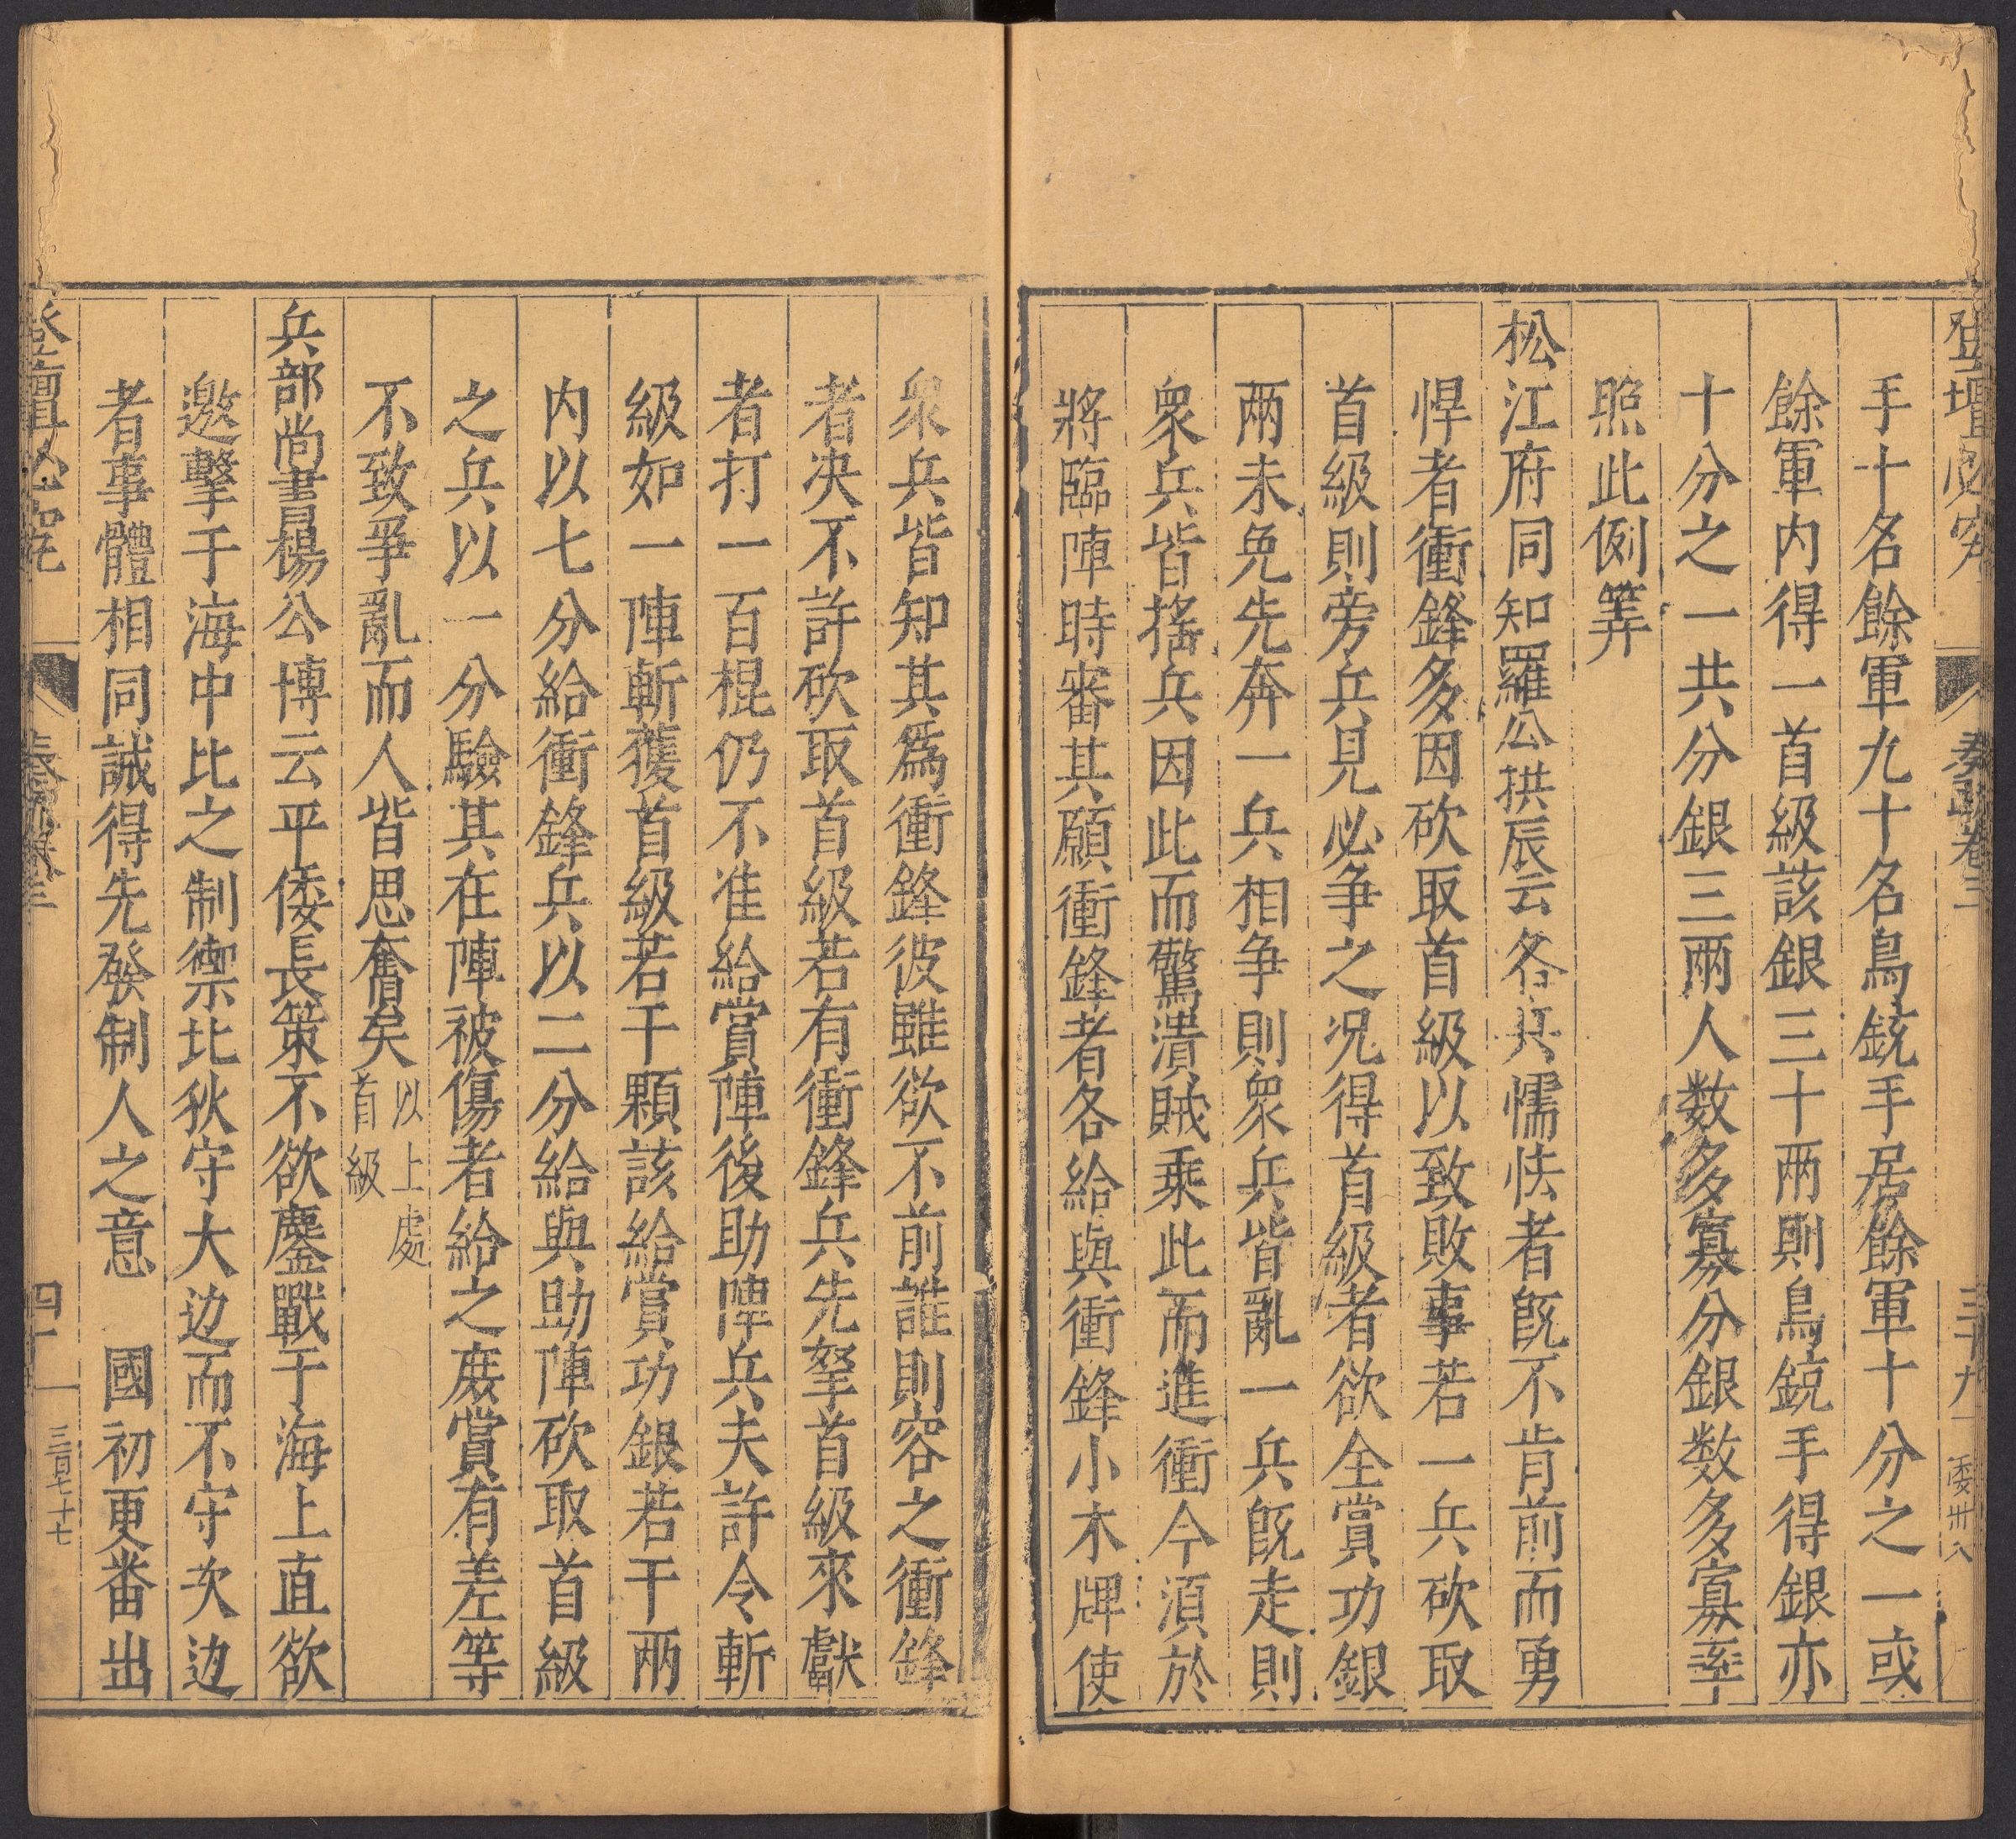 登壇必究 奏疏卷三 三十九
手十名餘軍九十名鳥銃手居餘軍十分之一或
餘軍内得一首級該銀三十两則鳥銃手得銀亦
十分之一共分銀三兩人数多寡分銀数多寡率
照此例筭
松江府同知羅公拱辰云各兵懦怯者旣不肯前而勇
悍者衝鋒多因砍取首級以致敗事若一兵砍取
首級則旁兵見必争之况得首級者欲全賞功銀
两未免先奔一兵相争則衆兵皆亂一兵旣走則
衆兵皆搖兵因此而驚潰賊乘此而進衝今湏於
將臨陣時審其願衝鋒者各給與衝鋒小木牌使
衆兵皆知其爲衝鋒彼雖欲不前誰則容之衝鋒
者决不許砍取首級若有衝鋒兵先拏首級來獻
者打一百棍仍不准給賞陣後助陣兵夫許令斬
級如一陣斬獲首級若干顆該給賞功銀若干两
内以七分給衝鋒兵以二分給與助陣砍取首級
之兵以一分驗其在陣被傷者給之庻賞有差等
不致爭亂而人皆思奮矣以上處首級
兵部尚書楊公博云平倭長策不欲鏖戰于海上直欲
邀擊于海中比之制禦北狄守大边而不守次边
者事體相同誠得先發制人之意 國初更番出
登壇必究 奏疏卷三 四十 三百七十七